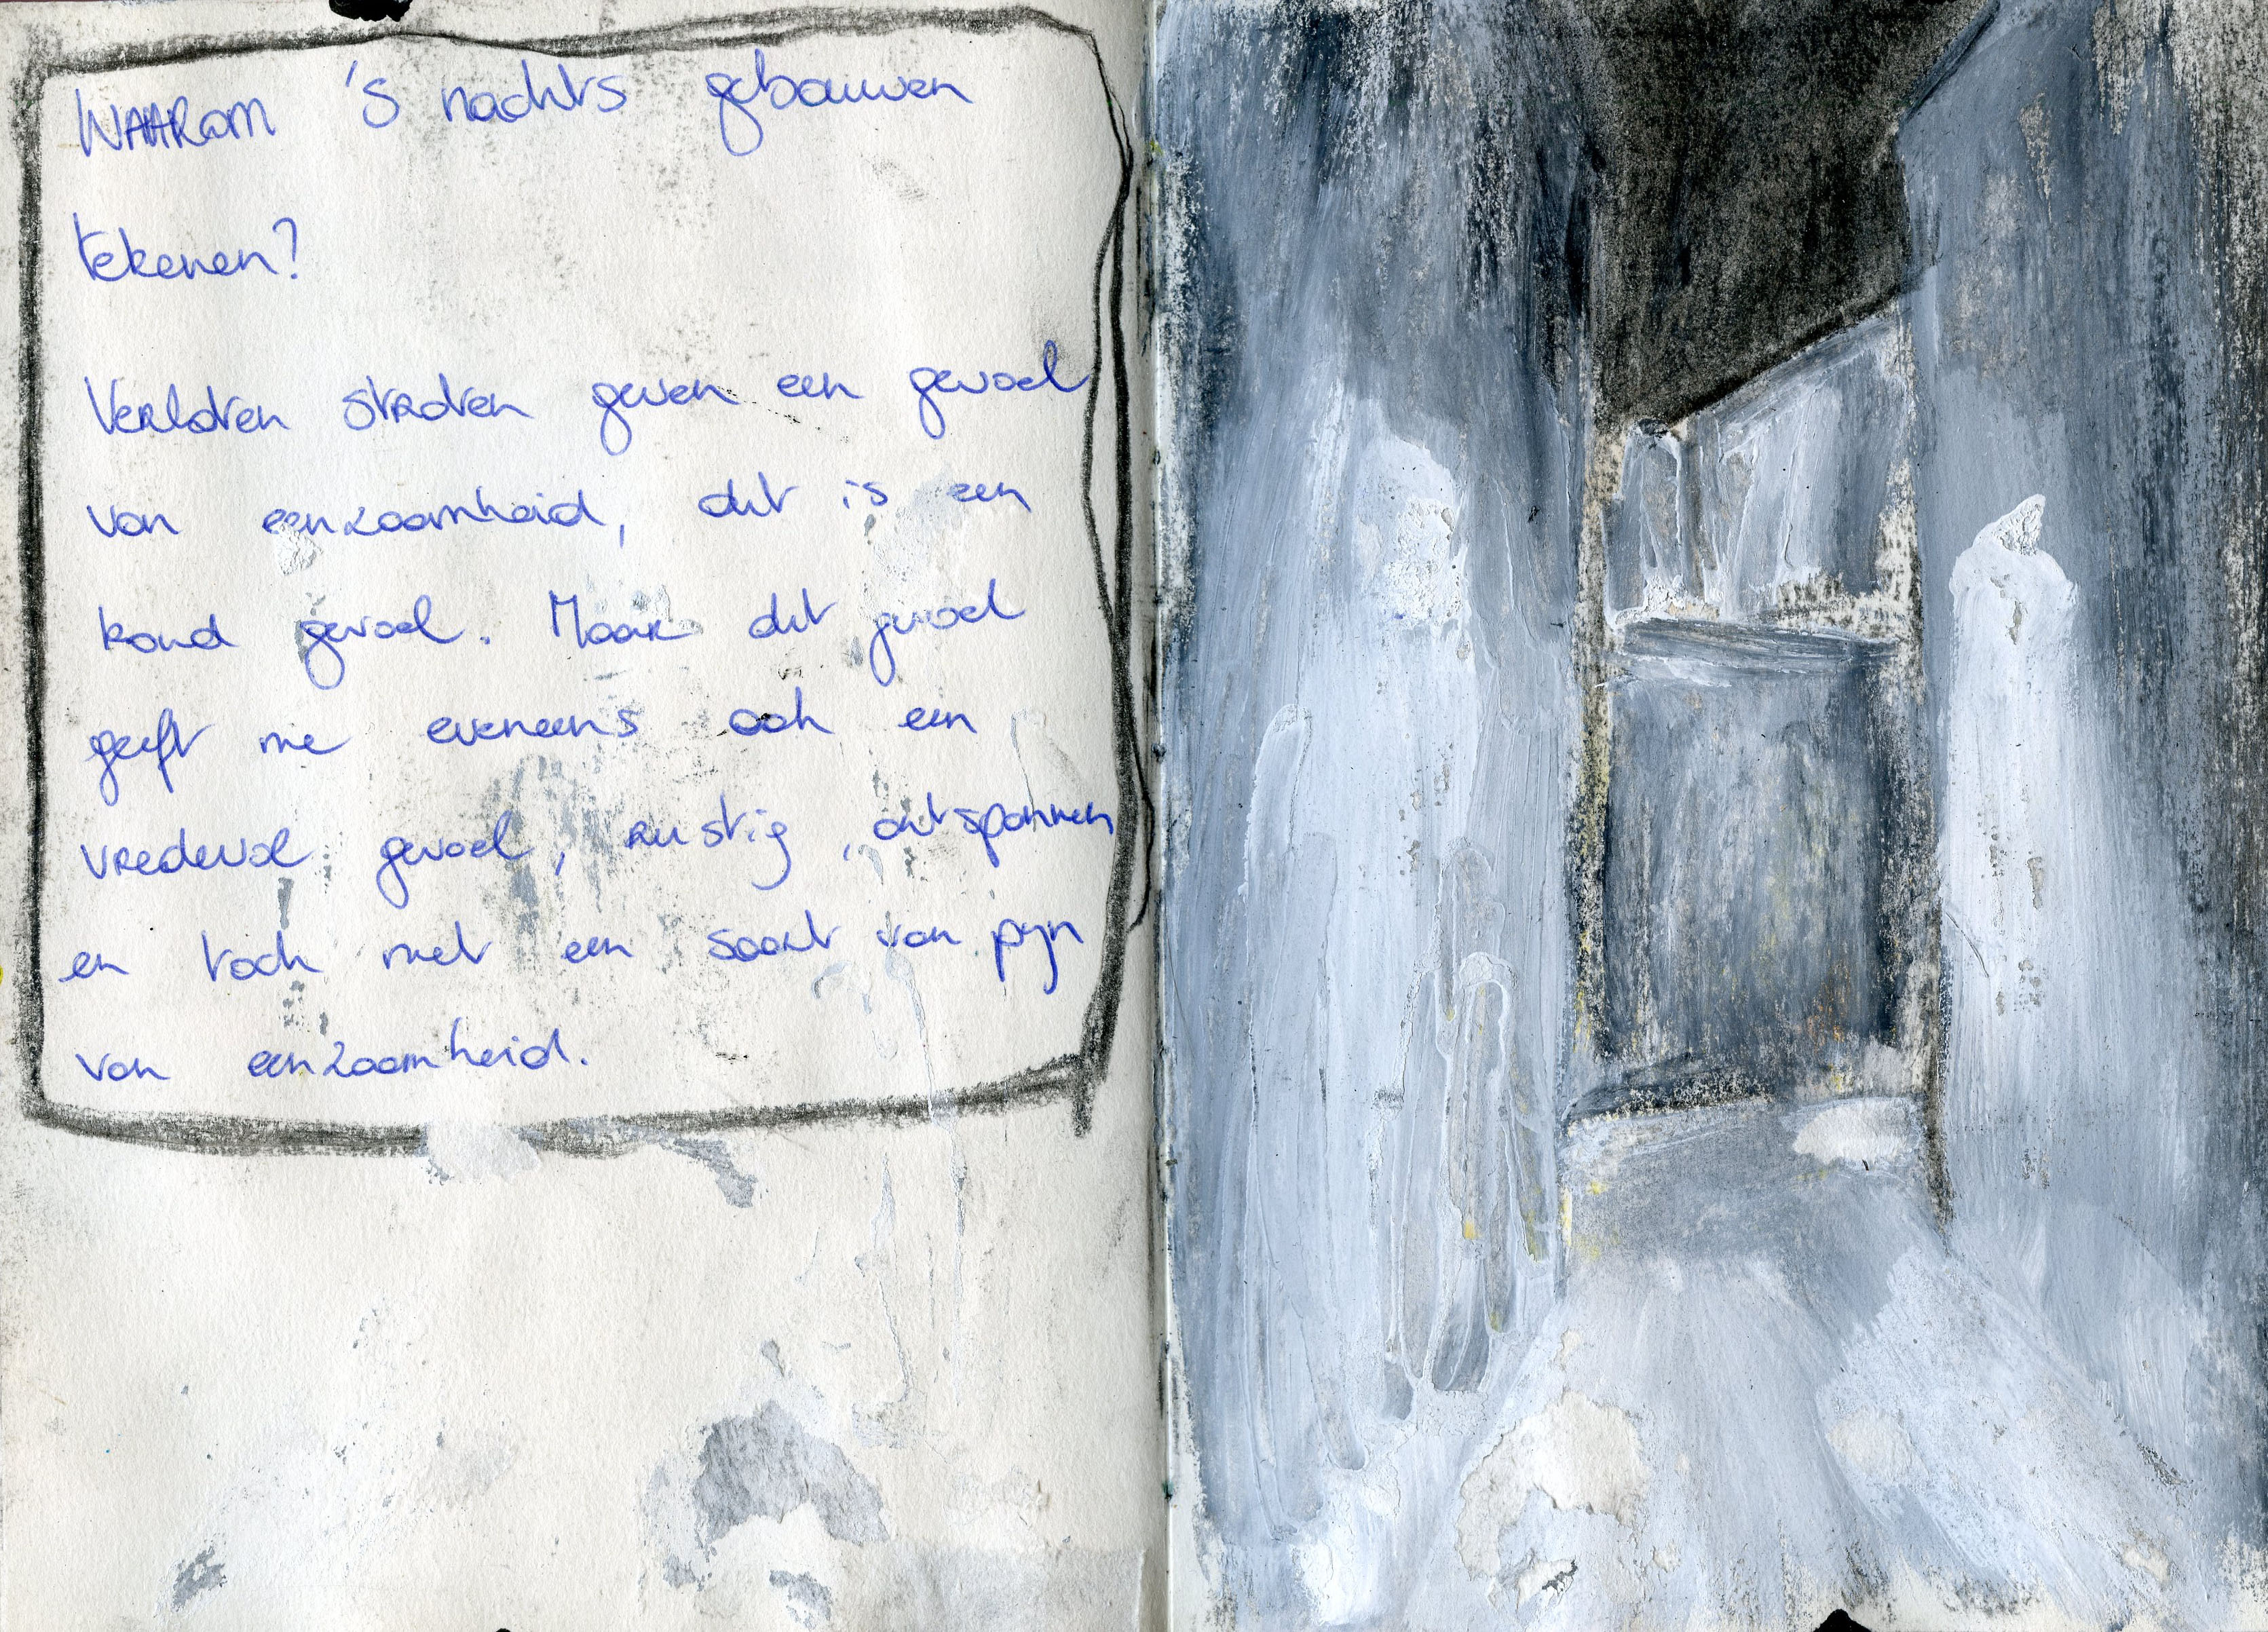 WAAROM 's nachts gebouwen
tekenen?
Verlaten straten geven een gevoel
van eenzaamheid, dit is een
koud gevoel. Maar dit gevoel
geeft me eveneens ook een
vredevol gevoel, rustig, ontspannen
en toch met een soort van pijn
van eenzaamheid.